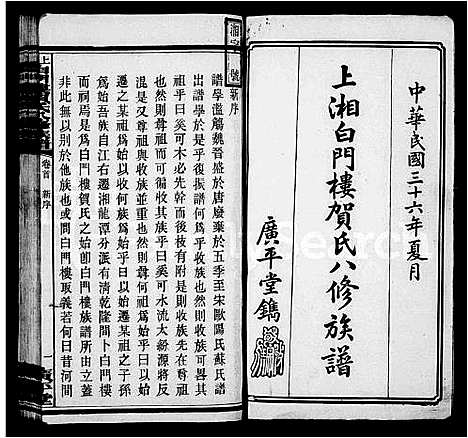 中華民國三十六年夏月
上湘白門樓賀氏八修族譜
廣平堂鐫
新序
譜學濫觴魏晉盛於唐廢棄於五季至宋歐陽氏蘇氏譜
出譜學於是乎復振譜何為乎收族也然則收族奚始始
祖乎曰奚可木先幹而後枝有附是則收族先在尊祖
也然則尊祖孰始始於得姓之祖乎曰奚可水流太遠源將反
混是又尊祖與收族並重也然則尊何祖為始乎曰以始
遷之某祖為始也然則收何族為始乎曰以始遷某祖之子孫
為始吾族自江右遷湘龍潭分派有清乾隆間卜白門樓
而祠焉是為白門樓賀氏之始卽白門樓收族譜所由立蓋
非此無以別於他族也或問白門樓取義若何曰昔河間
卷首 新序
一